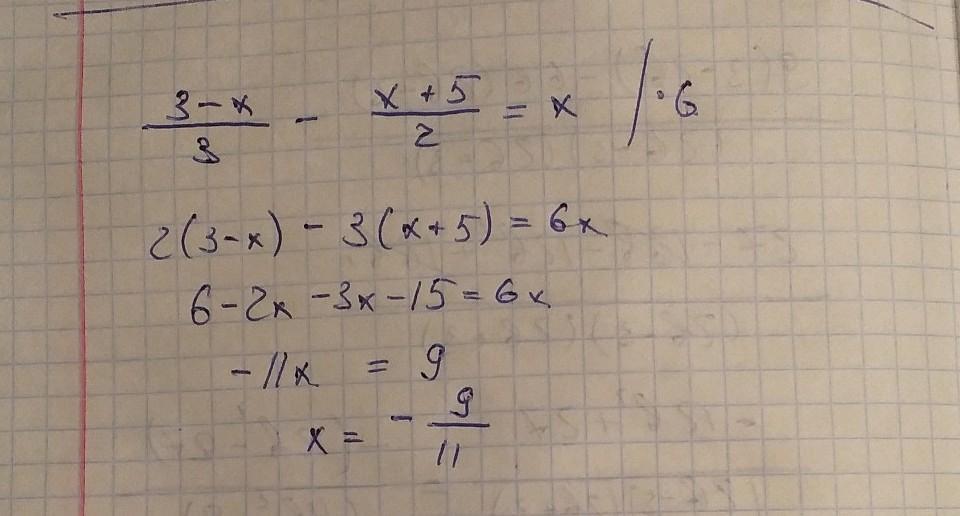 (3-x)/3 - (x+5)/2 = x /·6
2(3-x) - 3(x+5) = 6x
6-2x-3x-15=6x
-11x = 9
x = - 9/11